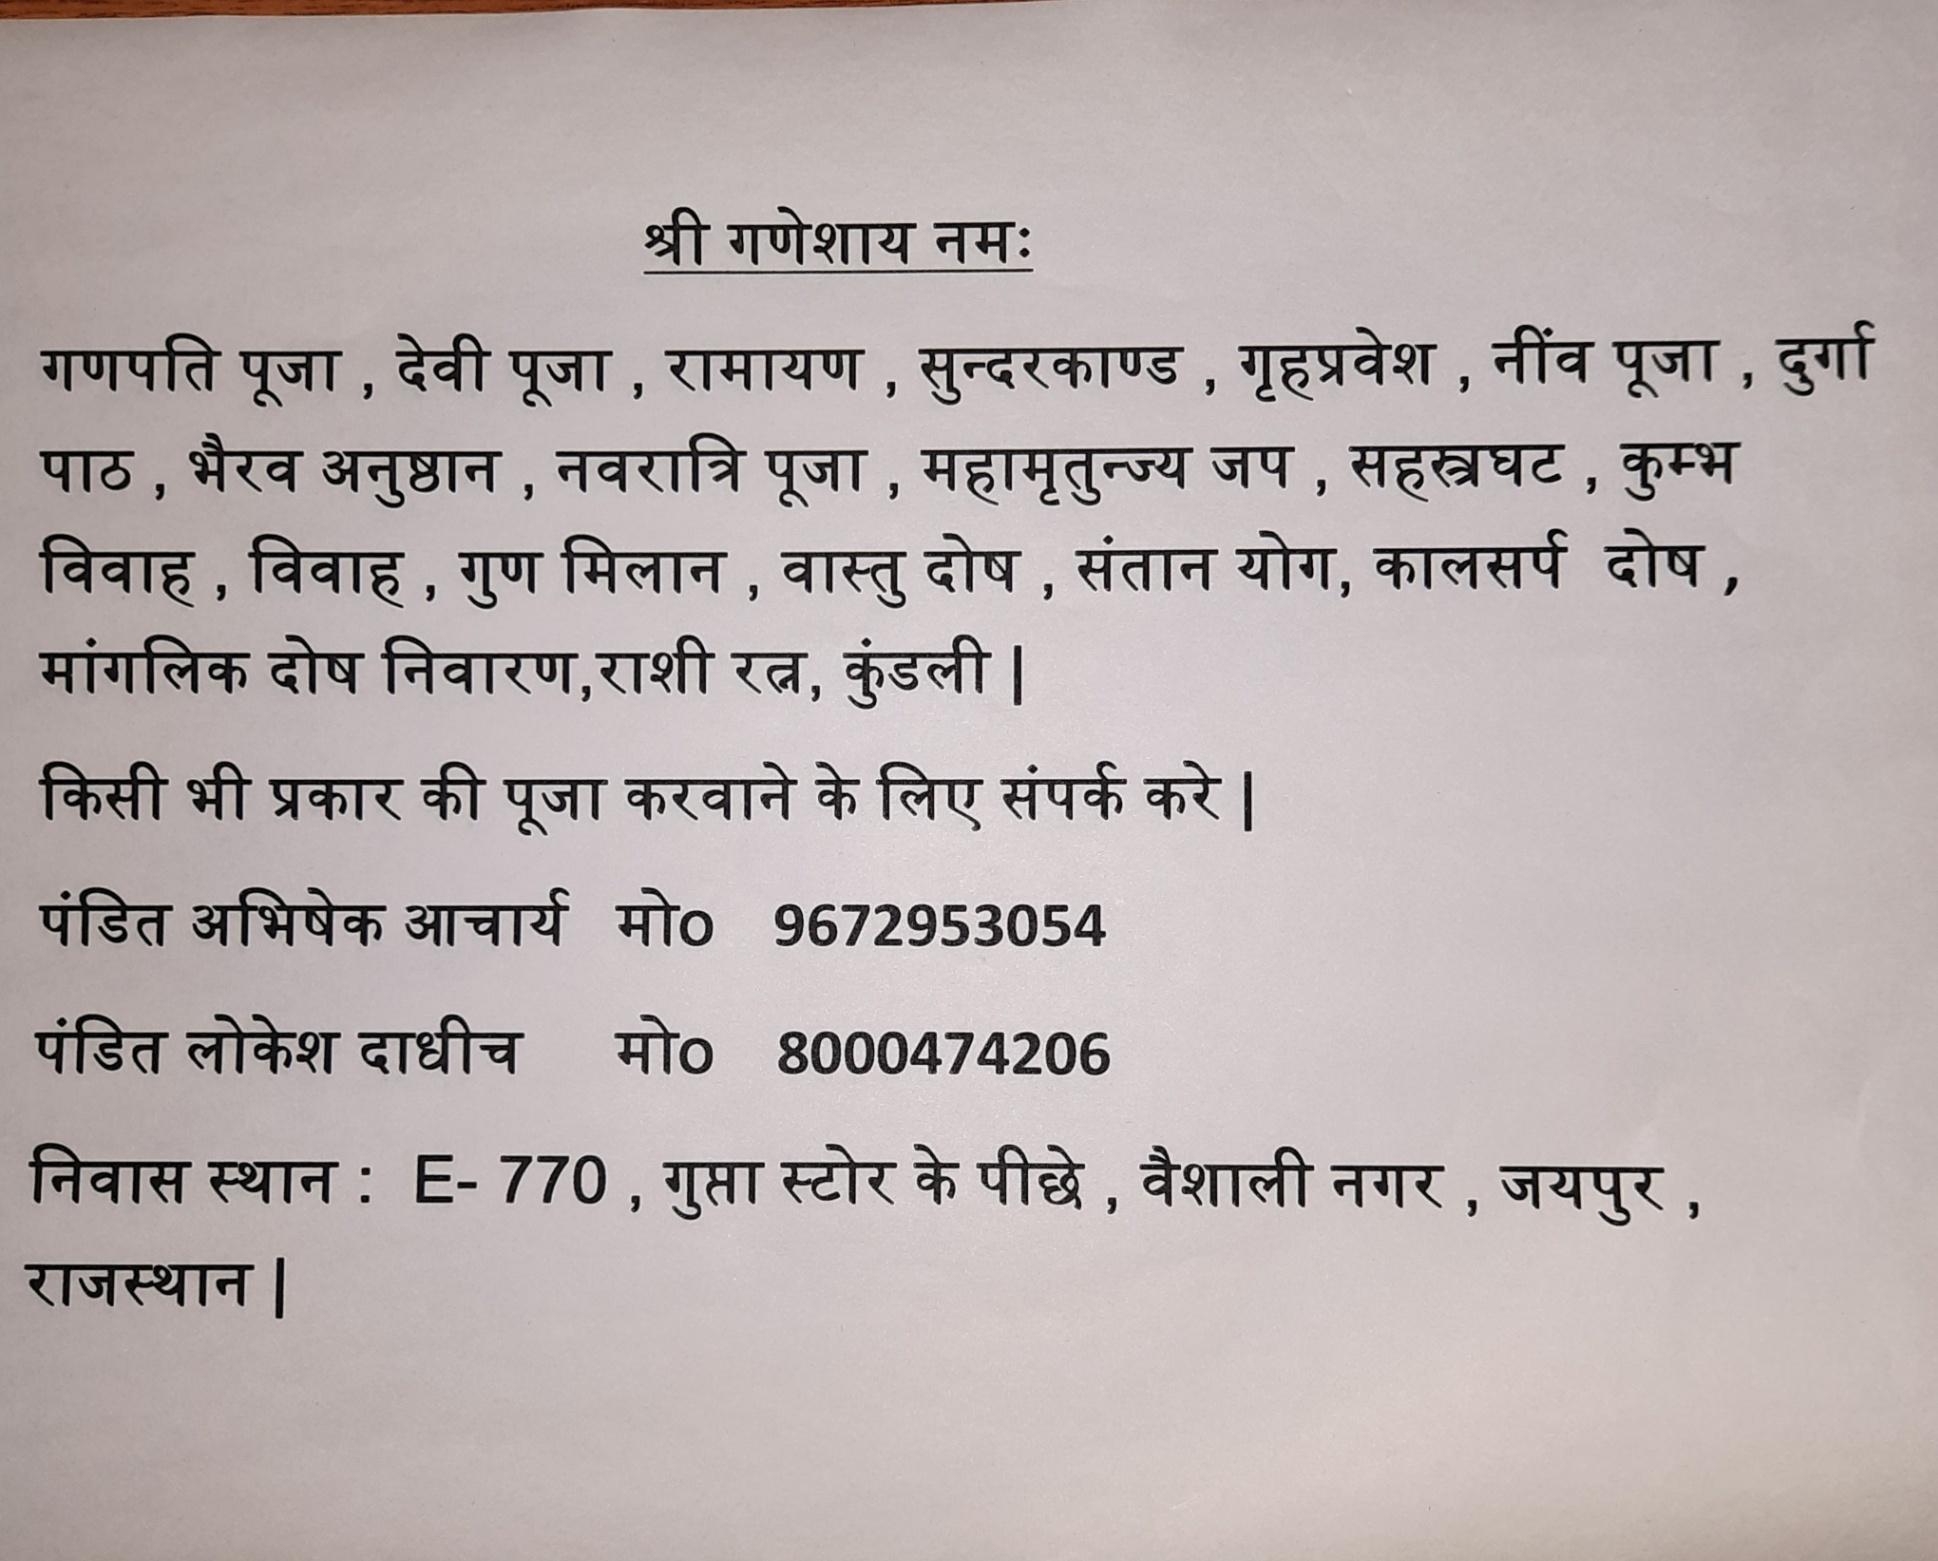 श्री गणेशाय नमः
गणपति पूजा , देवी पूजा , रामायण , सुन्दरकाण्ड , गृहप्रवेश , नींव पूजा , दुर्गा
पाठ , भैरव अनुष्ठान , नवरात्रि पूजा , महामृतुन्ज्य जप , सहस्त्रघट , कुम्भ
विवाह , विवाह , गुण मिलान , वास्तु दोष , संतान योग, कालसर्प दोष ,
मांगलिक दोष निवारण,राशी रत्न, कुंडली |
किसी भी प्रकार की पूजा करवाने के लिए संपर्क करे |
पंडित अभिषेक आचार्य मो० 9672953054
पंडित लोकेश दाधीच मो० 8000474206
निवास स्थान : E- 770 , गुप्ता स्टोर के पीछे , वैशाली नगर , जयपुर ,
राजस्थान |